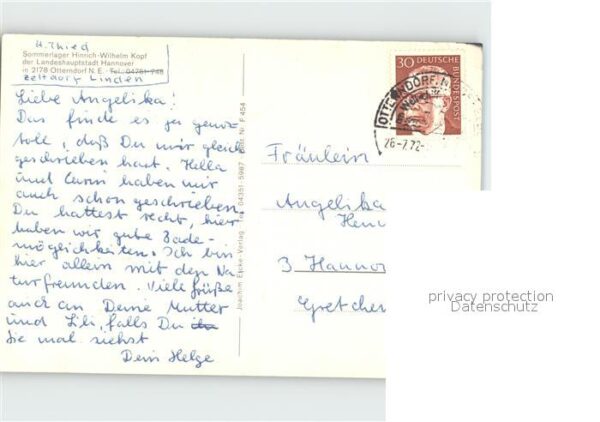 H. Thied
Sommerlager Hinrich-Wilhelm Kopf
der Landeshauptstadt Hannover
in 2178 Otterndorf N. E. - Tel. 04751-748
Zeltdorf Linden
Liebe Angelika!
Das finde es ja ganz
toll, daß Du mir gleich
geschrieben hast. Hella
und haben mir
auch schon geschrieben.
Du hattest recht, hier
haben wir gute Bade-
möglichkeiten. Ich bin
hier allein mit den Na-
turfreunden. Viele Grüße
auch an Deine Mutter
und Lili, falls Du
Sie mal siehst
Dein Helge
Joachim Eicke-Verlag Tel. 04351-5987 Best. Nr. F 454
30 DEUTSCHE
BUNDESPOST
OTTERNDORF, N
26-7.72-
Fräulein
Angelika
Henn
3 Hanno
Gretchen
privacy protection
Datenschutz